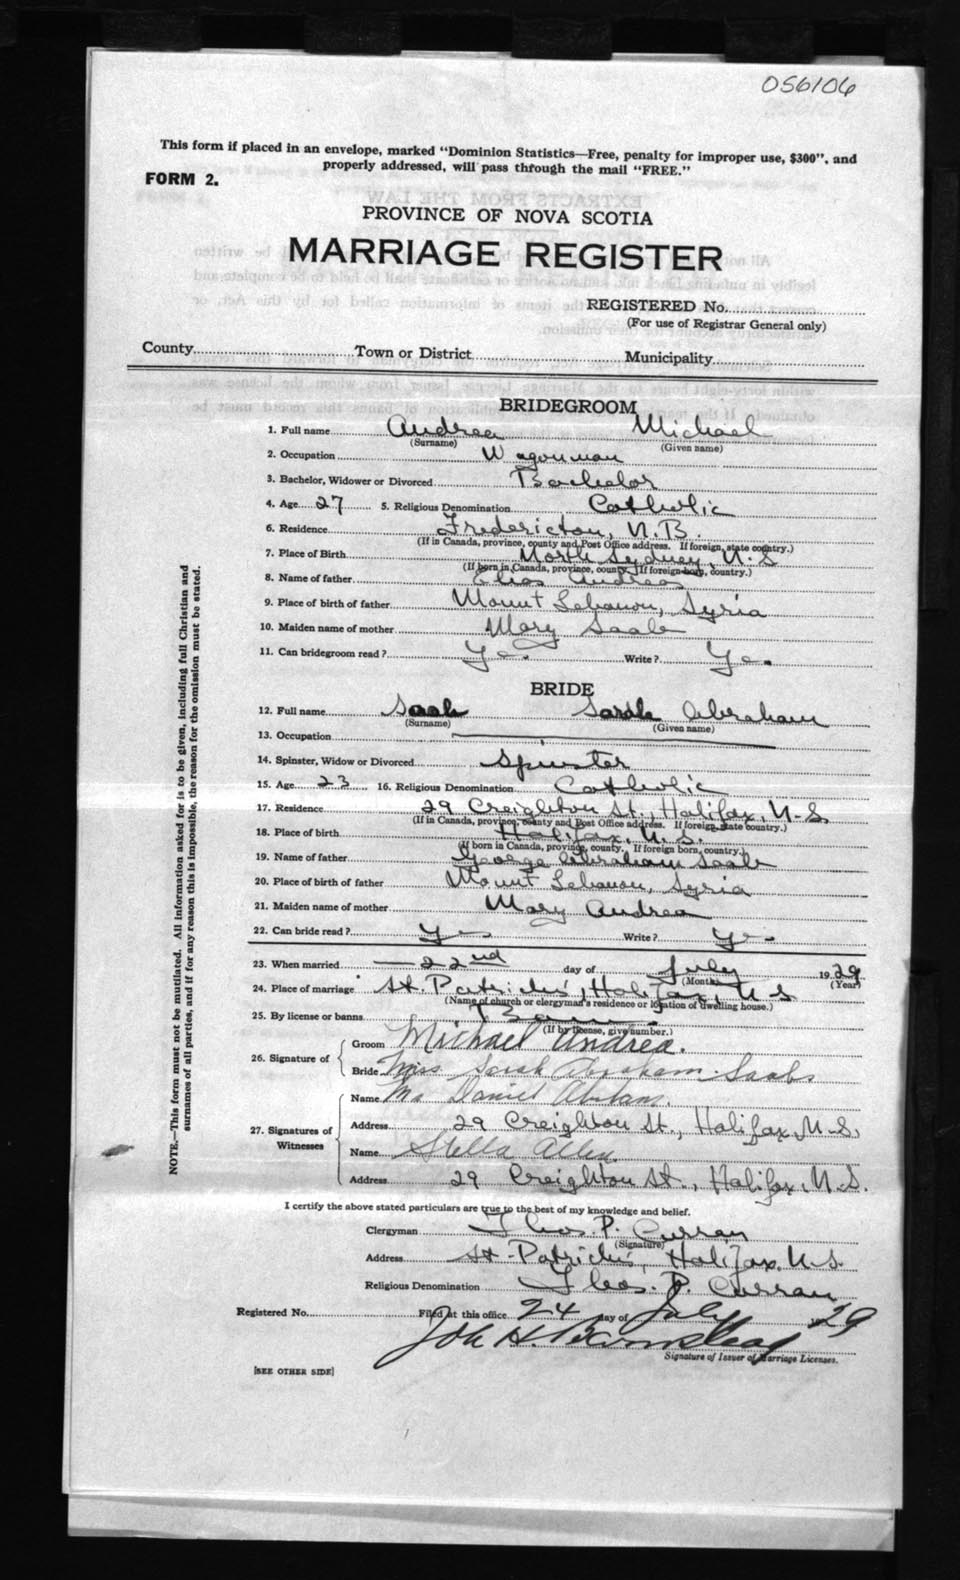 056106
This form if placed in an envelope, marked "Dominion Statistics—Free, penalty for improper use, $300", and
properly addressed, will pass through the mail "FREE."
FORM 2.
PROVINCE OF NOVA SCOTIA
MARRIAGE REGISTER
REGISTERED No.
(For use of Registrar General only)
County Town or District Municipality
BRIDEGROOM
1. Full name Andrea Michael
(Surname) (Given name)
2. Occupation Wagonman
3. Bachelor, Widower or Divorced Bachelor
4. Age 27 5. Religious Denomination Catholic
6. Residence Fredericton, N.B.
(If in Canada, province, county and Post Office address. If foreign, state country.)
7. Place of Birth North Sydney, N.S
(If born in Canada, province, county. If foreign born, country.)
8. Name of father Elias Andrea
9. Place of birth of father Mount Lebanon, Syria
10. Maiden name of mother Mary Saab
11. Can bridegroom read? Yes Write? Yes
BRIDE
12. Full name Saab Sarah Abraham
(Surname) (Given name)
13. Occupation
14. Spinster, Widow or Divorced Spinster
15. Age 23 16. Religious Denomination Catholic
17. Residence 29 Creighton St., Halifax, N.S.
(If in Canada, province, county and Post Office address. If foreign, state country.)
18. Place of birth Halifax, N.S.
(If born in Canada, province, county. If foreign born, country.)
19. Name of father George Abraham Saab
20. Place of birth of father Mount Lebanon, Syria
21. Maiden name of mother Mary Andrea
22. Can bride read? Yes Write? Yes
23. When married 22nd day of July 1929
(Month) (Year)
24. Place of marriage St. Patrick's, Halifax, N.S
(Name of church or clergyman's residence or location of dwelling house.)
25. By license or banns Banns
(If by license, give number.)
26. Signature of Groom Michael Andrea.
Bride Miss Sarah Abraham Saab
27. Signatures of Witnesses
Name Daniel
Address 29 Creighton St., Halifax, N.S.
Name Stella Allen
Address 29 Creighton St., Halifax, N.S.
I certify the above stated particulars are true to the best of my knowledge and belief.
Clergyman Theo. P. Curran
(Signature)
Address St. Patrick's, Halifax, N.S.
Religious Denomination Theo. P. Curran
Registered No. Filed at this office 24 day of July 1929
Signature of Issuer of Marriage Licenses.
[SEE OTHER SIDE]
NOTE.—This form must not be mutilated. All information asked for is to be given, including full Christian and
surnames of all parties, and if for any reason this is impossible, the reason for the omission must be stated.